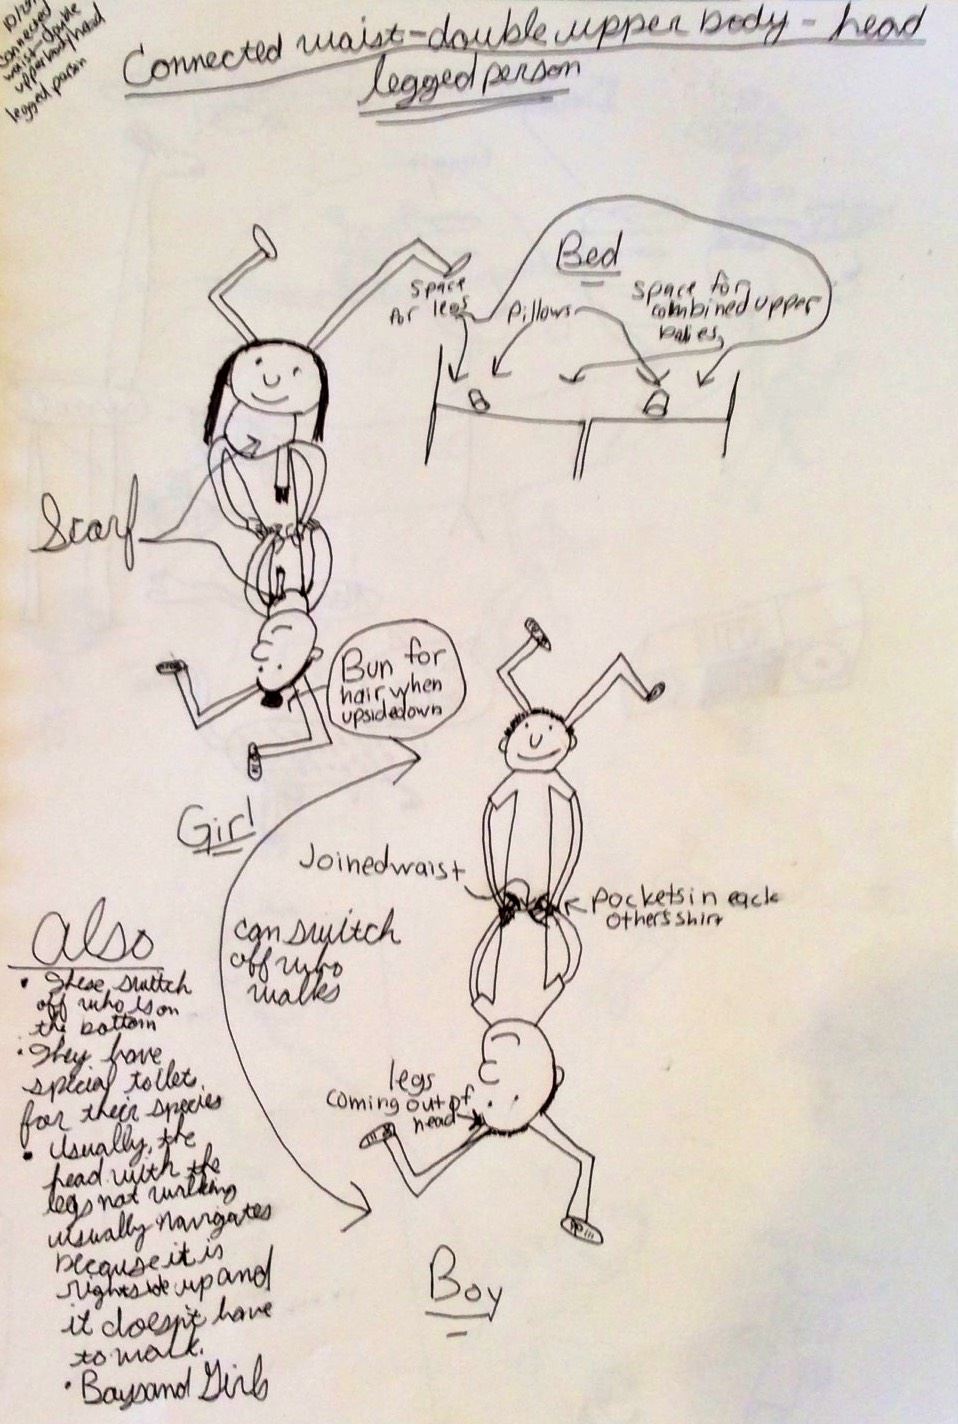 10/27
Connected
waist-double
upperbody/head
legged person
Connected waist-double upper body - head
legged person
Bed
space
for legs
Pillows
space for
combined upper
bodies
Scarf
Bun for
hair when
upsidedown
Girl
Joined waist
Pockets in each
others shirt
can switch
off who
walks
legs
coming out of
head
Boy
Also
• These switch
off who is on
the bottom
• They have
special toilets
for their species
• Usually, the
head with the
legs not walking
usually navigates
because it is
rightside up and
it doesn't have
to walk.
• Boys and Girls